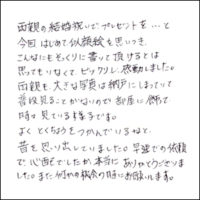 両親の結婚祝いでプレゼントを…と
今回はじめて似顔絵を思いつき、
こんなにもそっくりに書って頂けるとは
思ってもいなくて、ビックリし、感動しました。
両親も、大きな写真は納戸にしまってて
普段見ることがないので部屋に飾って
時々見ている様子です。
よくとくちょうをつかんでいるねと、
昔を思い出していました。早急での依頼
で心配でしたが、本当にありがとうございま
した。また何かの機会の時にお願いします。